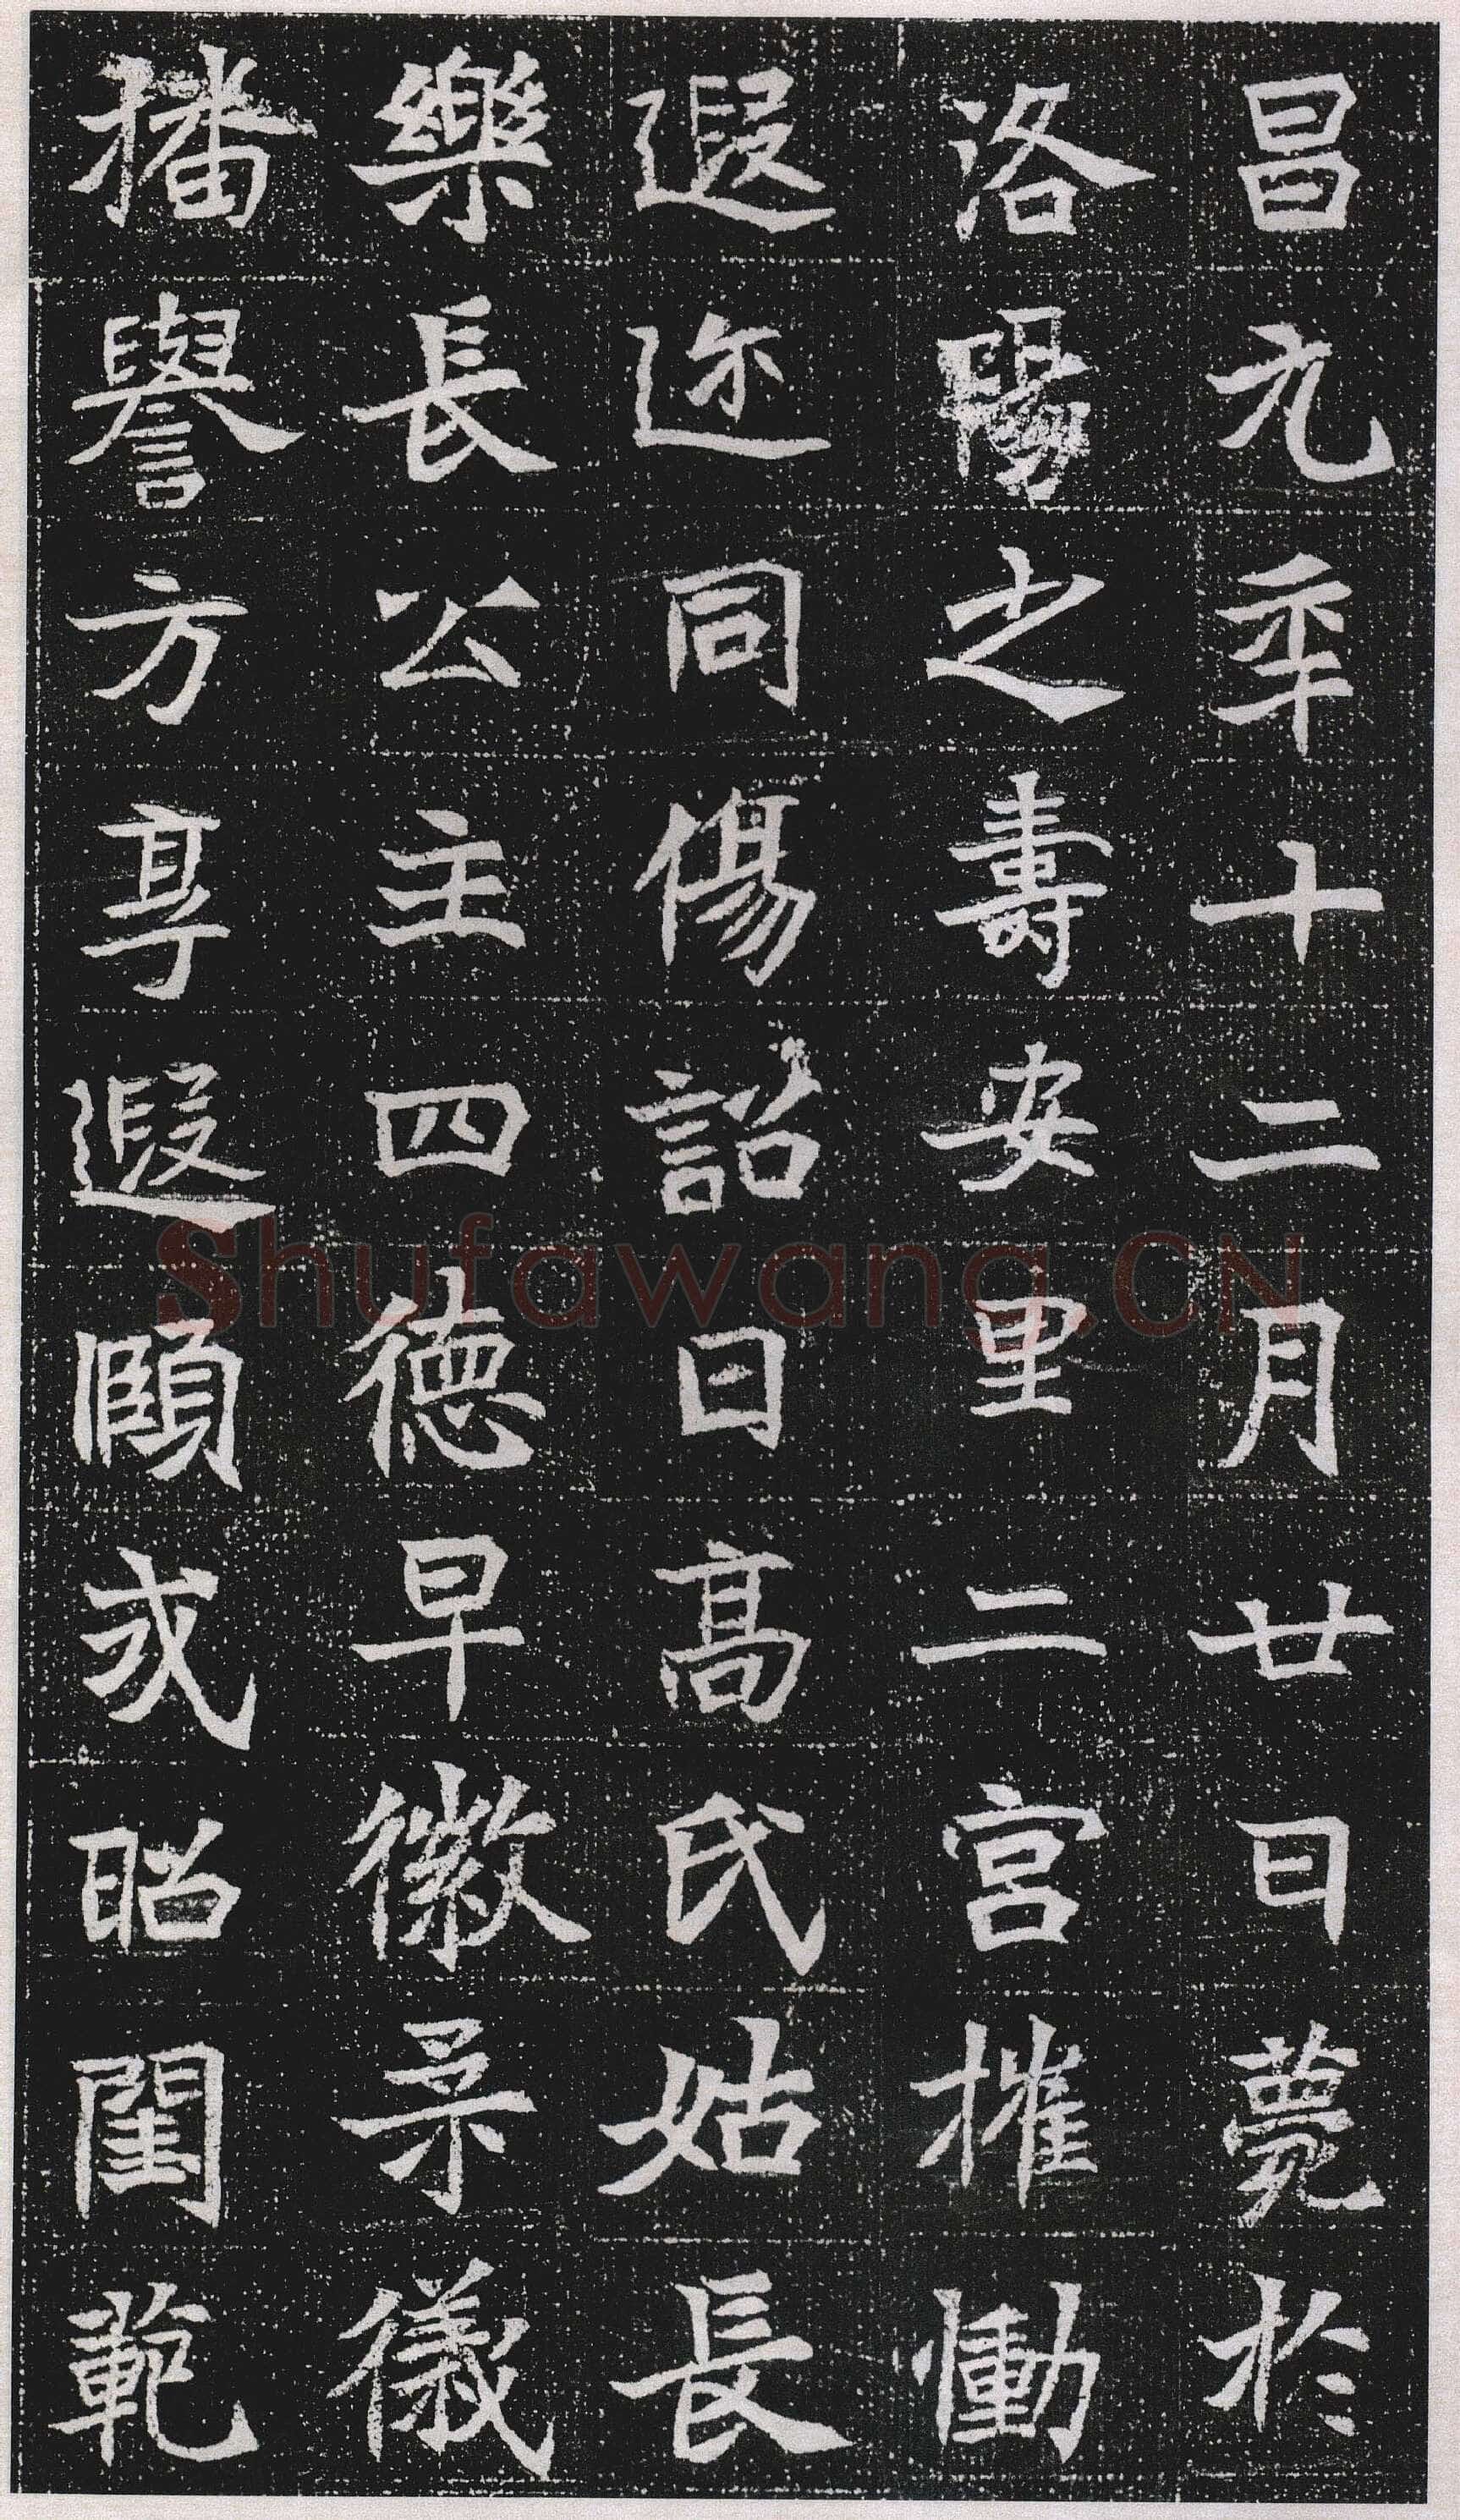 昌元年十二月廿日薨於
洛陽之壽安里二宮摧慟
遐迩同傷詔曰高氏姑長
樂長公主四德早徽柔儀
播譽方享遐頤式昭閨範
Shufawang.CN